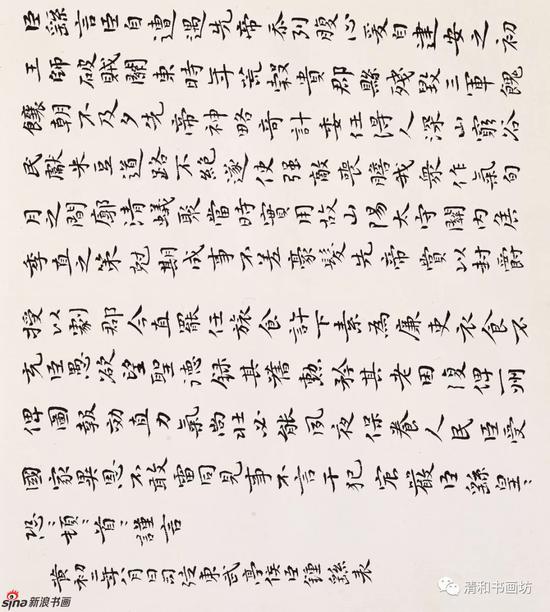 臣繇言臣自遭遇先帝忝列腹心爰自建安之初
王師破賊關東時年荒穀貴郡縣殘毀三軍餽
饟朝不及夕先帝神略奇計委任得人深山窮谷
民獻米豆道路不絕遂使強敵喪膽我衆作氣旬
月之間廓清蟻聚當時實用故山陽太守關內矦
季直之策尅期成事不差豪髮先帝賞以封爵
授以劇郡今直罷任旅食許下素為廉吏衣食不
充臣愚欲望聖德錄其舊勳矜其老困復俾一州
俾圖報効直力氣尚壯必能夙夜保養人民臣受
國家異恩不敢雷同見事不言干犯宸嚴臣繇皇〻
恐〻頓〻首〻謹言
黃初二年八月日司徒東武亭侯臣鍾繇表
sina 新浪书画
清和书画坊